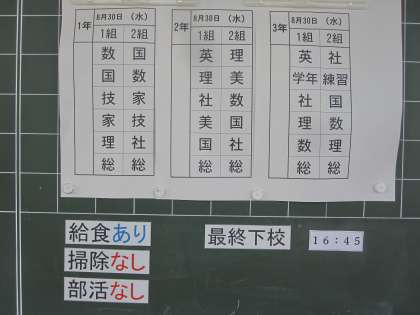 1年 8月30日 (水)
1組 2組
数 国
国 数
技 家
家 技
理 社
総 総
2年 8月30日 (水)
1組 2組
英 理
理 美
社 数
美 国
国 社
総 総
3年 8月30日 (水)
1組 2組
英 社
学年 練習
社 国
理 数
数 理
総 総
給食あり
掃除なし
部活なし
最終下校 16:45